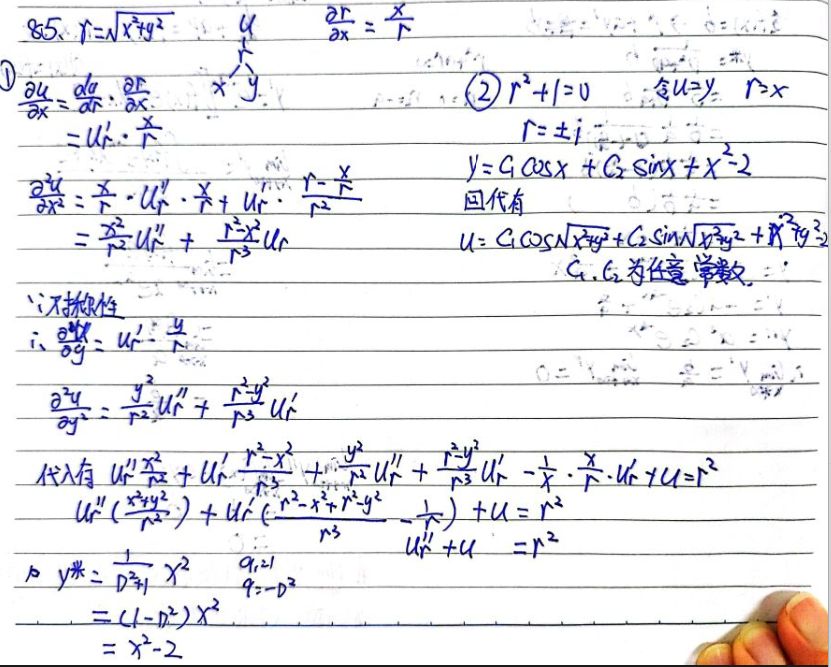 85、r=√(x²+y²)
u
r
x y
∂r/∂x = x/r
① ∂u/∂x = du/dr · ∂r/∂x
= u'r · x/r
∂²u/∂x² = x/r · u''r · x/r + u'r · (r - x/r)/r²
= x²/r² u''r + (r²-x²)/r³ ur
∵对称性
∴ ∂u/∂y = u'r · y/r
∂²u/∂y² = y²/r² u''r + (r²-y²)/r³ u'r
代入有 u''r x²/r² + u'r (r²-x²)/r³ + y²/r² u''r + (r²-y²)/r³ u'r - 1/x · x/r · u'r + u = r²
u''r ((x²+y²)/r²) + u'r ((r²-x²+r²-y²)/r³ - 1/r) + u = r²
u''r + u = r²
y* = 1/(D²+1) x²
a₁=1
q=-D²
= (1-D²) x²
= x²-2
② r²+1=0 令u=y r=x
r=±i
y=C₁cosx + C₂ sinx + x²-2
回代有
u= C₁cos√(x²+y²) + C₂ sin√(x²+y²) + x²+y²-2
C₁、C₂为任意常数.